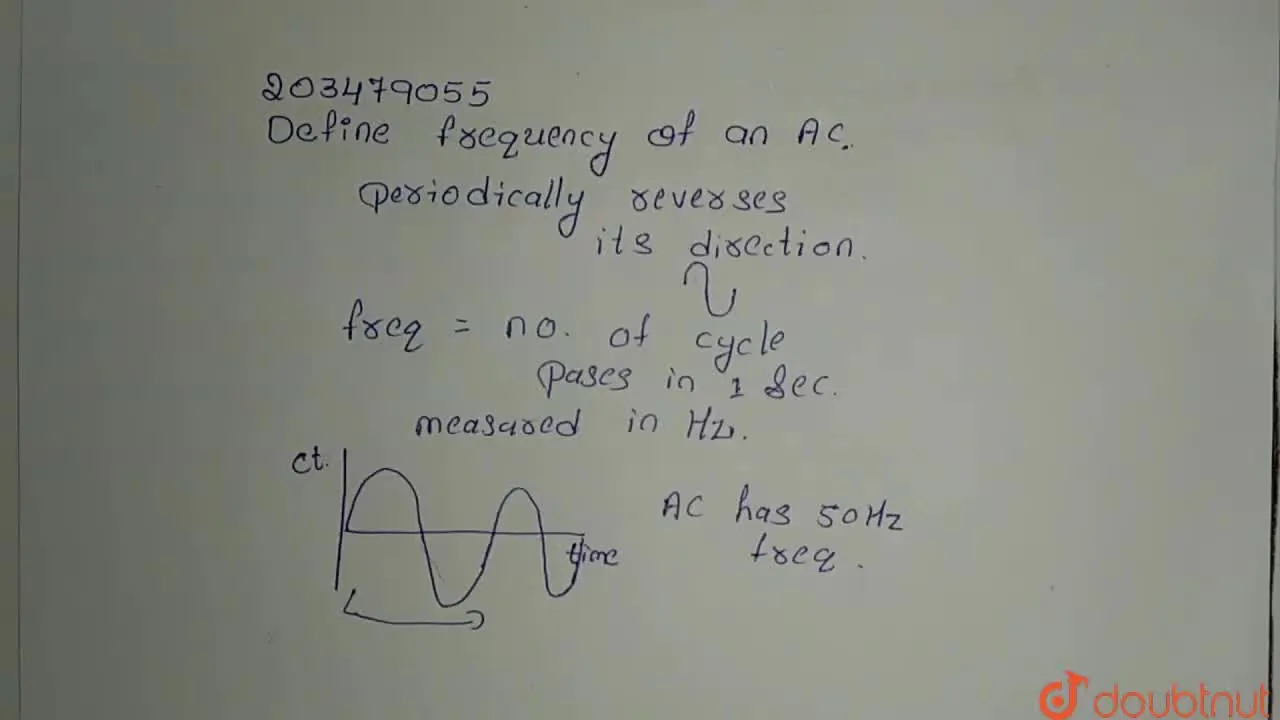 203479055
Define frequency of an AC.
periodically reverses
its direction.
freq = no. of cycle
pases in 1 Sec.
measured in Hz.
ct.
AC has 50Hz
time
freq.
doubtnut